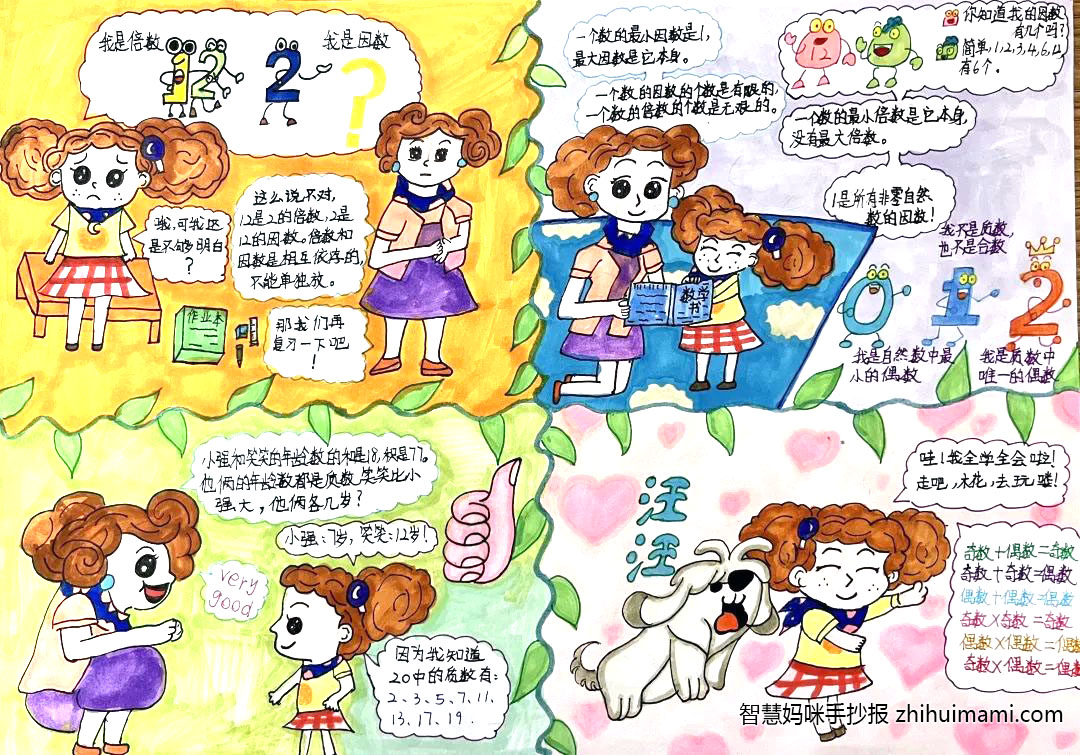 我是倍数
12
2
我是因数
?
哦,可我还
是不够明白
?
这么说不对,
12是2的倍数,2是
12的因数。倍数和
因数是相互依存的,
不能单独放。
作业本
那我们再
复习一下吧
!
一个数的最小因数是1,
最大因数是它本身。
一个数的因数的个数是有限的,
一个数的倍数的个数是无限的。
12
你知道我的因数
有几个吗?
简单,1,2,3,4,6,12
有6个。
一个数的最小倍数是它本身,
没有最大倍数。
1是所有非零自然
数的因数!
数学
书
我不是质数,
也不是合数
0
1
2
我是自然数中最
小的偶数
我是质数中
唯一的偶数
小强和笑笑的年龄数的和是18,积是77。
他俩的年龄数都是质数,笑笑比小
强大,他俩各几岁?
小强:7岁,笑笑:12岁!
very
good
因为我知道
20中的质数有:
2、3、5、7、11、
13、17、19.
汪
汪
哇!我全学全会啦!
走吧,木花,去玩喽!
奇数+偶数=奇数
奇数+奇数=偶数
偶数+偶数=偶数
奇数×奇数=奇数
偶数×偶数=偶数
奇数×偶数=偶数
智慧妈咪手抄报 zhihuimami.com